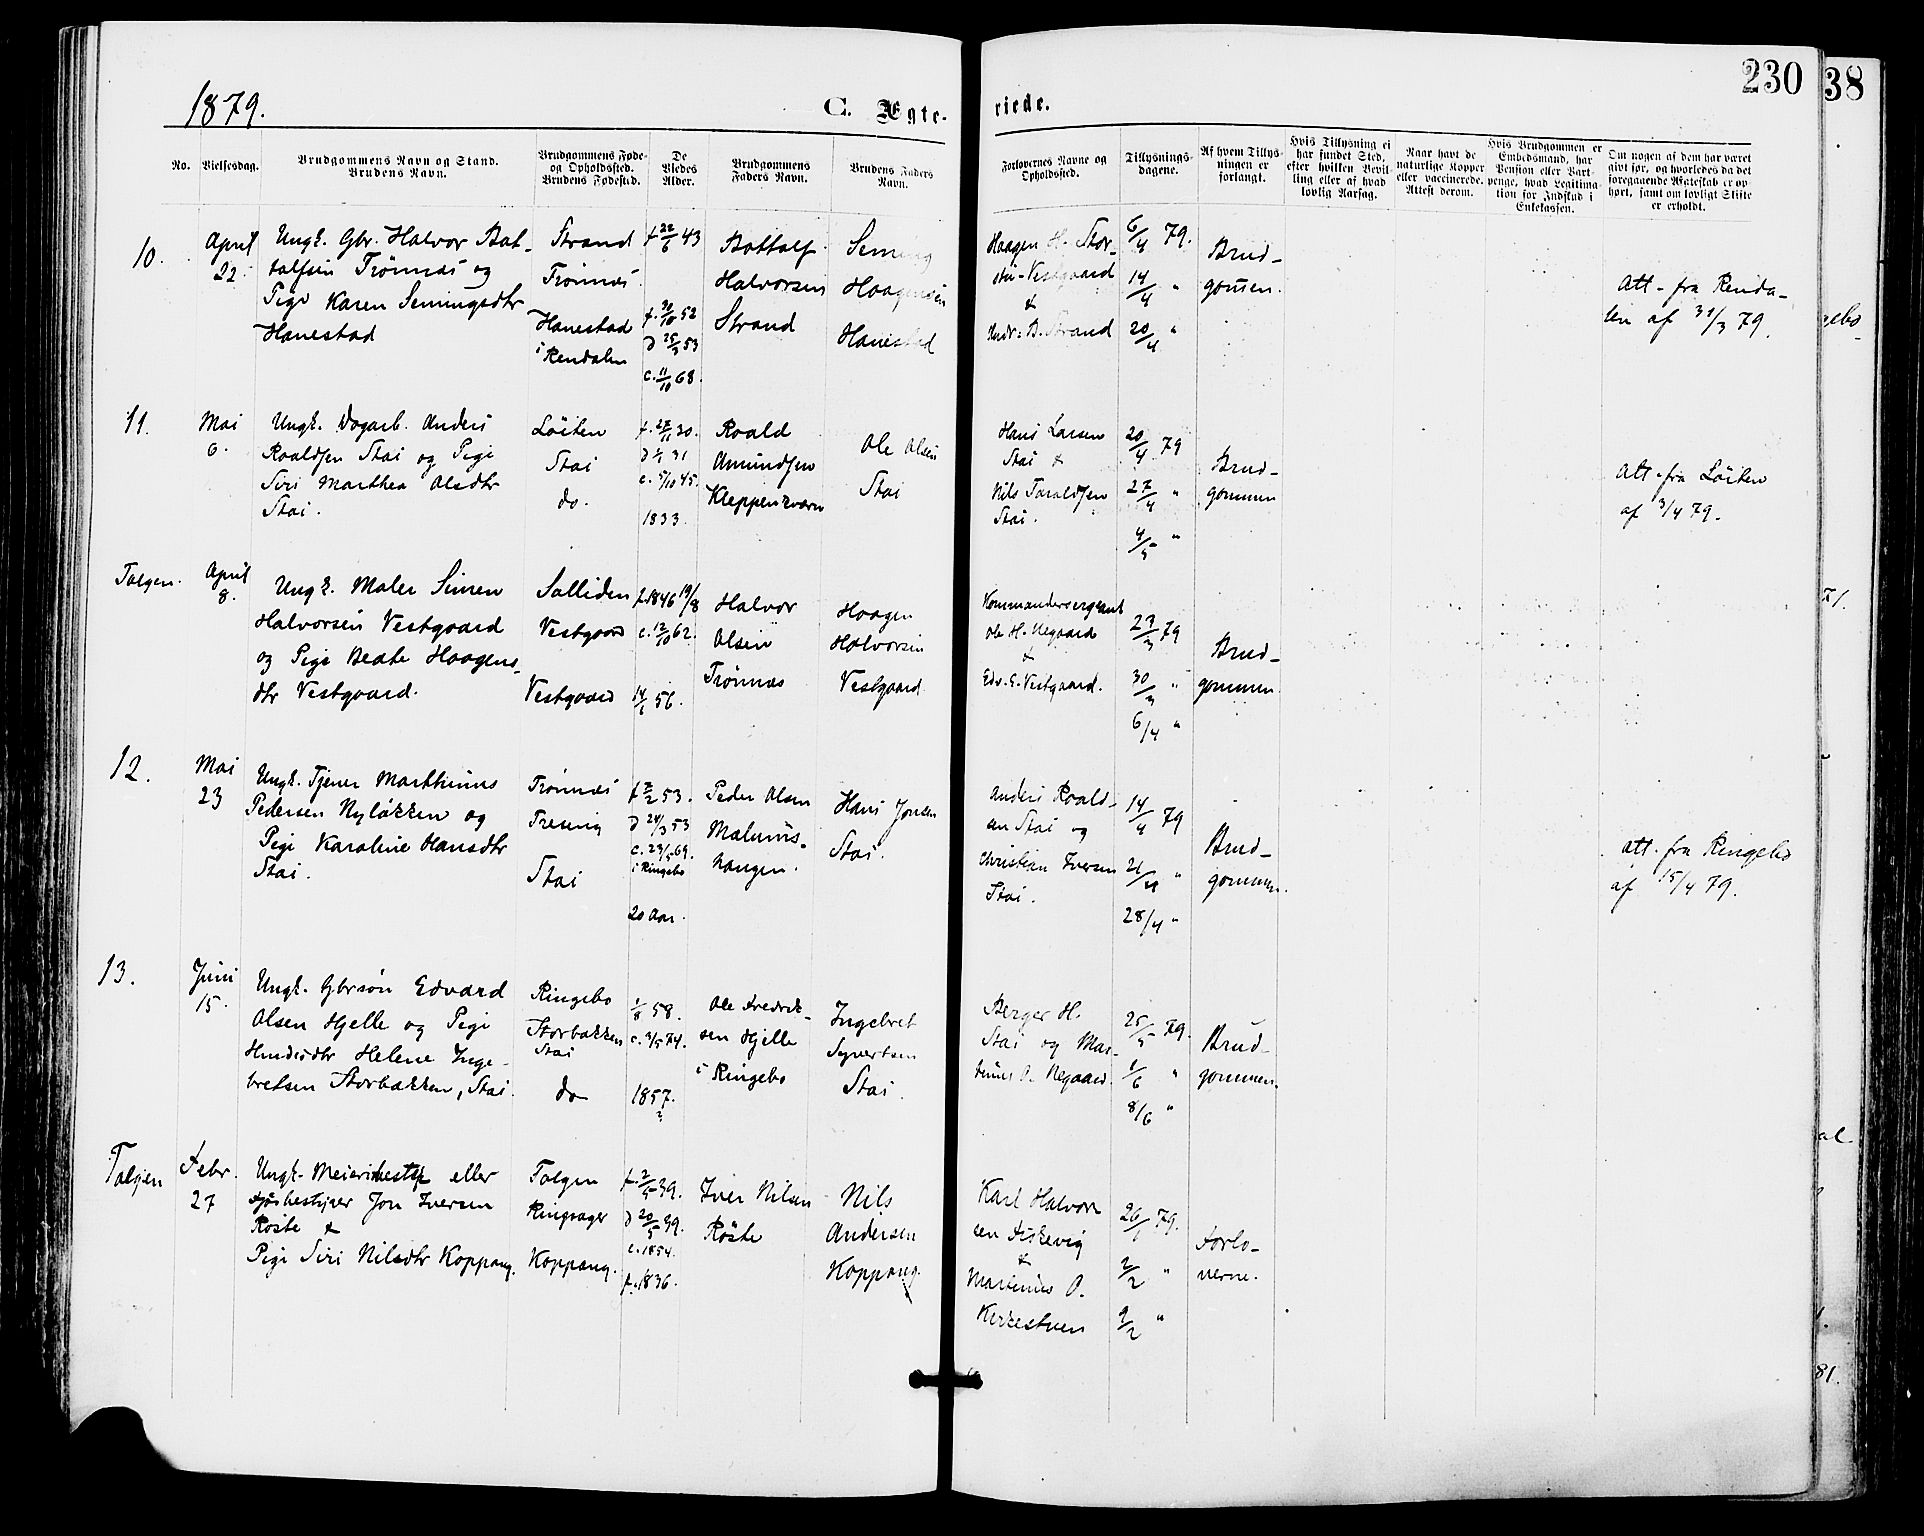 1879.
C. Ægte-
riede.
230
38
No.
Vielsesdag.
Brudgommens Navn og Stand.
Brudens Navn.
Brudgommens Føde-
og Opholdssted.
Brudens Fødested.
De
Viedes
Alder.
Brudgommens
Faders Navn.
Brudens Faders
Navn.
Forlovernes Navne og
Opholdssted.
Tillysnings-
dagene.
Af hvem Tillys-
ningen er
forlangt.
Hvis Tillysning ei
har fundet Sted,
efter hvilken Bevil-
ling eller af hvad
lovlig Aarsag.
Naar havt de
naturlige Kopper
eller vaccinerede.
Attest derom.
Hvis Brudgommen er
Embedsmand, har
Pension eller Vart-
penge, hvad Legitima-
tion for Indskud i
Enkekassen.
Om nogen af dem har været
givt før, og hvorledes da det
foregaaende Ægteskab er op-
hørt, samt om lovligt Skifte
er erholdt.
10.
April
22.
Ungk. Gbr. Halvor Bat-
talfsen Trönnæs og
Pige Karen Semingsdtr
Hanestad
Strand
Trönnæs
Hanestad
i Rendalen
f 22/6 43
f. 20/10 52
d 25/3 53
c. 11/10 68.
Battalf
Halvorsen
Strand
Seming
Haagensen
Hanestad
Haagen H. Stor-
stu-Vestgaard
&
Halvr. B. Strand
6/4 79.
14/4 "
20/4 "
Brud-
gommen.
Att. fra Renda-
len af 31/3 79.
11.
Mai
6.
Ungk. Dagarb. Anders
Roaldsen Stai og Pige
Siri Marthea Olsdtr
Stai.
Löiten
Stai
do.
f. 27/11 30.
d 1/1 31
c. 5/10 45.
1833.
Roald
Amundsen
Kleppenzværn
Ole Olsen
Stai
Hans Larsen
Stai &
Nils Taraldsen
Stai.
20/4 79
27/4 "
4/5 "
Brud-
gommen
Att. fra Löiten
af 3/4 79.
Tolgen.
April
8.
Ungk. Maler Simen
Halvorsen Vestgaard
og Pige Beate Haagens-
dtr Vestgaard.
Solliden
Vestgaard
Vestgaard
f. 1846 19/8
c. 12/10 62.
14/6 56.
Halvor
Olsen
Trönnæs
Haagen
Halvorsen
Vestgaard
Kommandersergeant
Ole H. Negaard
&
Edv. E. Vestgaard.
23/3 79
30/3 "
6/4 "
Brud-
gommen.
12.
Mai
23
Ungk. Tjener Marthinus
Pedersen Nyløkken og
Pige Karoline Hansdtr
Stai.
Trönnæs
Stai
f 2/2 53.
d 24/3 53
c. 23/5 69.
i Ringebo
20 Aar.
Peder Olsen
haugen.
Hans Jonsen
Stai.
Anders Roald-
sen Stai og
Christian Iversen
Stai.
14/4 79
21/4 "
28/4 "
Brud-
gommen.
Att. fra Ringebo
af 15/4 79.
13.
Juni
15.
Ungk. Gbrsøn Edvard
Olsen Hjelle og Pige
Helene Inge-
bretsen Storbækken, Stai.
Ringebo
Storbækken
Stai
do
1/8 58.
c. 3/5 74.
1857.
Ole Fredrik-
sen Hjelle
i Ringebo
Ingebret
Syvertsen
Stai.
Berger H.
Stai og Mar-
tinus O. Negaard.
25/5 79.
1/6 "
8/6 "
Brud-
gommen.
Tolgen
Febr.
27
Ungk. eller
Jon Iversen
Röste &
Pige Siri Nilsdtr Koppang.
Tolgen
Ringsager
Koppang.
f. 2/5 39.
d 20/5 39.
c. 1854.
f. 1836.
Iver Nilsen
Röste
Nils
Andersen
Koppang
Karl Halvor-
sen Fiskevig
&
Martinus O.
Kirkestuen
26/1 79.
2/2 "
9/2 "
Forlo-
verne.
81.